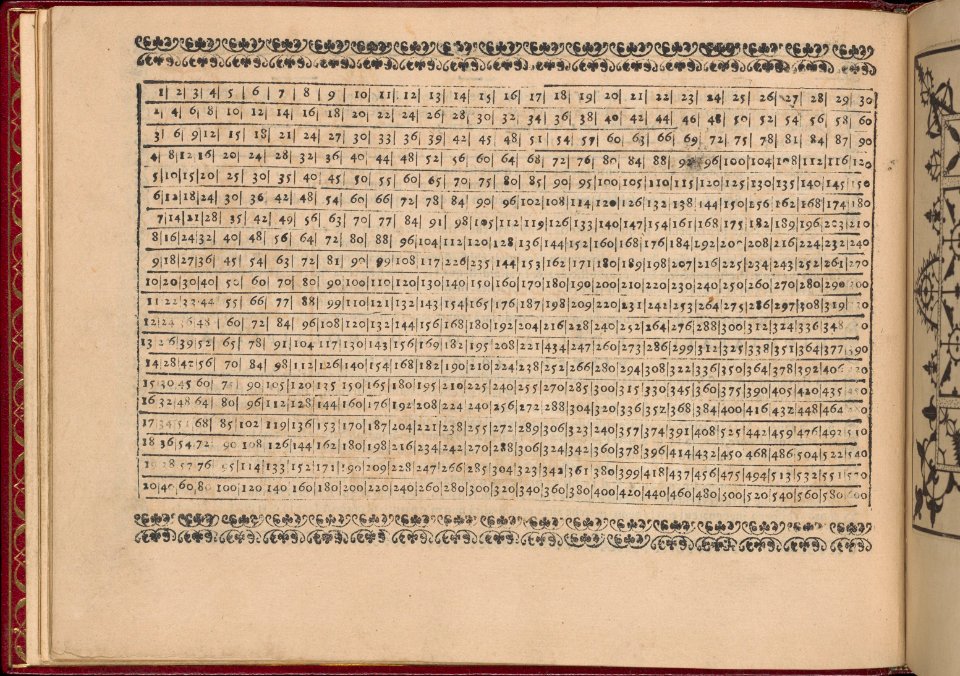 1 2 3 4 5 6 7 8 9 10 11 12 13 14 15 16 17 18 19 20 21 22 23 24 25 26 27 28 29 30
2 4 6 8 10 12 14 16 18 20 22 24 26 28 30 32 34 36 38 40 42 44 46 48 50 52 54 56 58 60
3 6 9 12 15 18 21 24 27 30 33 36 39 42 45 48 51 54 57 60 63 66 69 72 75 78 81 84 87 90
4 8 12 16 20 24 28 32 36 40 44 48 52 56 60 64 68 72 76 80 84 88 92 96 100 104 108 112 116 120
5 10 15 20 25 30 35 40 45 50 55 60 65 70 75 80 85 90 95 100 105 110 115 120 125 130 135 140 145 150
6 12 18 24 30 36 42 48 54 60 66 72 78 84 90 96 102 108 114 120 126 132 138 144 150 156 162 168 174 180
7 14 21 28 35 42 49 56 63 70 77 84 91 98 105 112 119 126 133 140 147 154 161 168 175 182 189 196 203 210
8 16 24 32 40 48 56 64 72 80 88 96 104 112 120 128 136 144 152 160 168 176 184 192 200 208 216 224 232 240
9 18 27 36 45 54 63 72 81 90 99 108 117 226 235 144 153 162 171 180 189 198 207 216 225 234 243 252 261 270
10 20 30 40 50 60 70 80 90 100 110 120 130 140 150 160 170 180 190 200 210 220 230 240 250 260 270 280 290
11 22 33 44 55 66 77 88 99 110 121 132 143 154 165 176 187 198 209 220 231 242 253 264 275 286 297 308 319
12 24 36 48 60 72 84 96 108 120 132 144 156 168 180 192 204 216 228 240 252 164 276 288 300 312 324 336 348
13 26 39 52 65 78 91 104 117 130 143 156 169 182 195 208 221 434 247 260 273 286 299 312 325 338 351 364 377 390
14 28 42 56 70 84 98 112 126 140 154 168 182 190 210 224 238 252 266 280 294 308 322 336 350 364 378 392 406
15 30 45 60 75 90 105 120 135 150 165 180 195 210 225 240 255 270 285 300 315 330 345 360 375 390 405 420 435
16 32 48 64 80 96 112 128 144 160 176 192 208 224 240 256 272 288 304 320 336 352 368 384 400 416 432 448 464
17 34 51 68 85 102 119 136 153 170 187 204 221 238 255 272 289 306 323 240 357 374 391 408 525 442 459 476 492 510
18 36 54 72 90 108 126 144 162 180 198 216 234 242 270 288 306 324 342 360 378 396 414 432 450 468 486 504 522 540
19 28 57 76 95 114 133 152 171 190 209 228 247 266 285 304 323 342 361 380 399 418 437 456 475 494 513 532 551 570
20 40 60 80 100 120 140 160 180 200 220 240 260 280 300 320 340 360 380 400 420 440 460 480 500 520 540 560 580 600